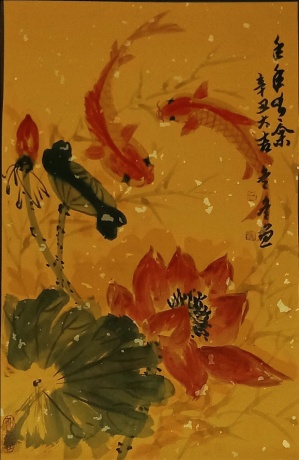 年年有余
辛丑大吉